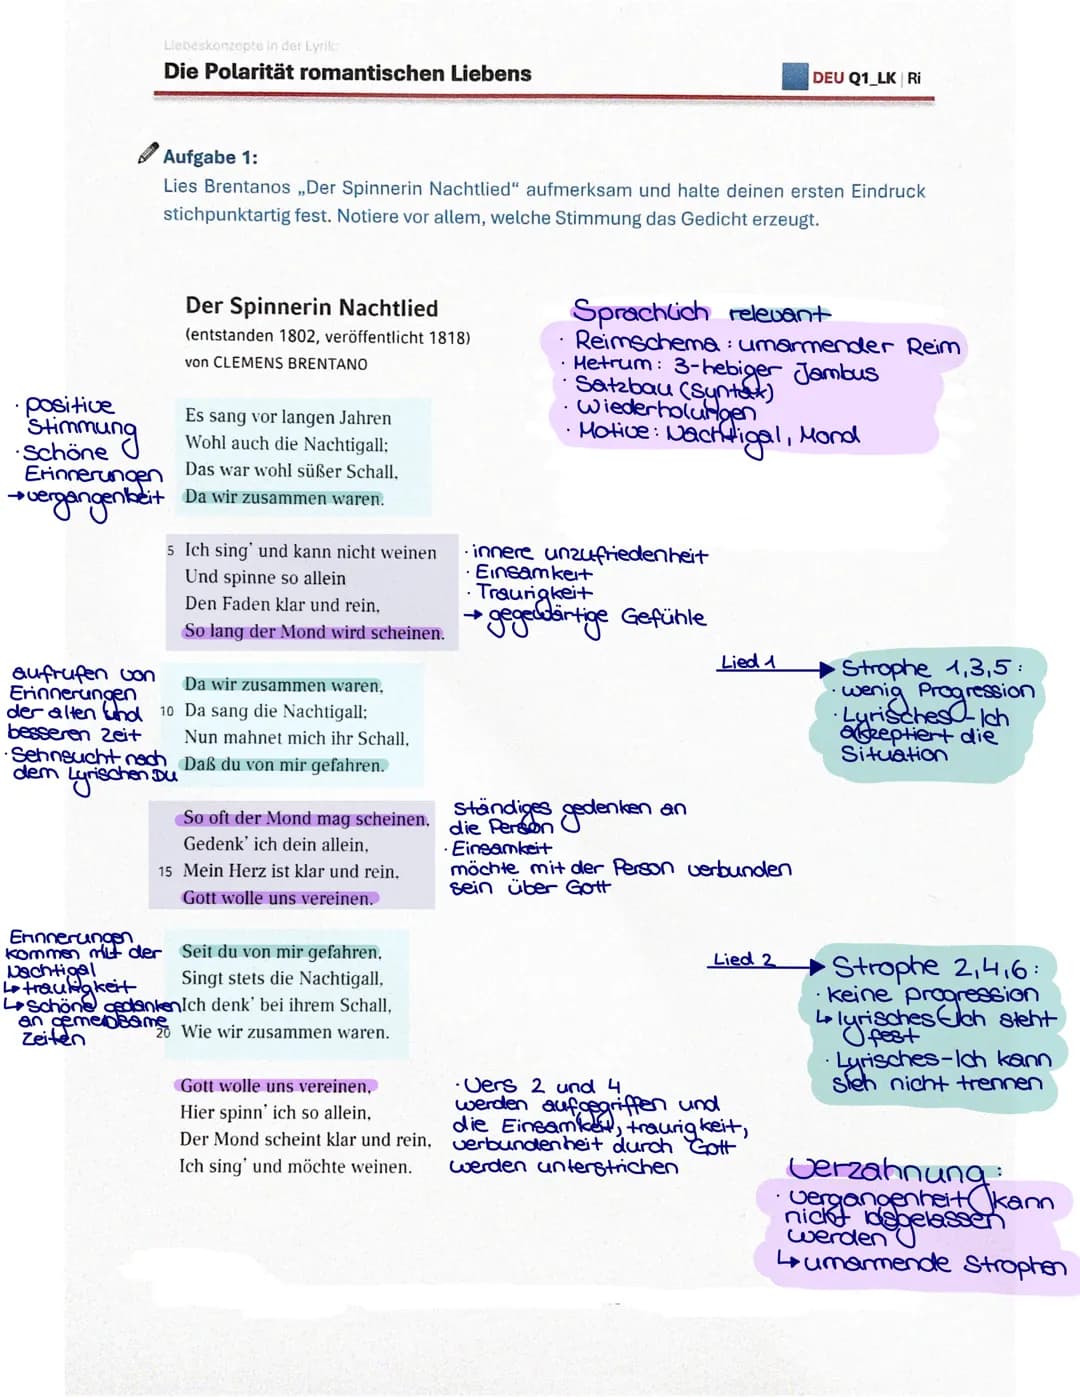 Liebeskonzepte in der Lyrik:
Die Polarität romantischen Liebens
DEU Q1_LK | Ri
Aufgabe 1:
Lies Brentanos „Der Spinnerin Nachtlied“ aufmerksam und halte deinen ersten Eindruck
stichpunktartig fest. Notiere vor allem, welche Stimmung das Gedicht erzeugt.
Der Spinnerin Nachtlied
(entstanden 1802, veröffentlicht 1818)
von CLEMENS BRENTANO
Sprachlich relevant
· Reimschema: umarmender Reim
· Metrum: 3-hebiger Jambus
· Satzbau (Syntax)
· Wiederholungen
· Motive: Nachtigal, Mond
· positive
Stimmung
· schöne
Erinnerungen
→ vergangenheit
Es sang vor langen Jahren
Wohl auch die Nachtigall;
Das war wohl süßer Schall,
Da wir zusammen waren.
5 Ich sing' und kann nicht weinen
Und spinne so allein
Den Faden klar und rein,
So lang der Mond wird scheinen.
· innere unzufriedenheit
· Einsamkeit
· Traurigkeit
→ gegewärtige Gefühle
aufrufen von
Erinnerungen
der alten und
besseren Zeit
· Sehnsucht nach
dem Lyrischen Du
Da wir zusammen waren,
10 Da sang die Nachtigall;
Nun mahnet mich ihr Schall,
Daß du von mir gefahren.
Lied 1
Strophe 1,3,5:
· wenig Progression
· Lyrisches-Ich
akzeptiert die
Situation
So oft der Mond mag scheinen,
Gedenk' ich dein allein,
15 Mein Herz ist klar und rein,
Gott wolle uns vereinen.
ständiges gedenken an
die Person
· Einsamkeit
möchte mit der Person verbunden
sein über Gott
Erinnerungen
kommen mit der
Nachtigal
↳ traurigkeit
↳ Schöne gedanken
an gemeinsame
Zeiten
Seit du von mir gefahren,
Singt stets die Nachtigall,
Ich denk' bei ihrem Schall,
20 Wie wir zusammen waren.
Lied 2
Strophe 2,4,6:
· keine progression
↳ lyrisches Ich steht
fest
· Lyrisches-Ich kann
sich nicht trennen
Gott wolle uns vereinen,
Hier spinn' ich so allein,
Der Mond scheint klar und rein,
Ich sing' und möchte weinen.
· Vers 2 und 4
werden aufgegriffen und
die Einsamkeit, traurigkeit,
verbundenheit durch Gott
werden unterstrichen
Verzahnung:
· vergangenheit kann
nicht losgelassen
werden
↳ umarmende Strophen